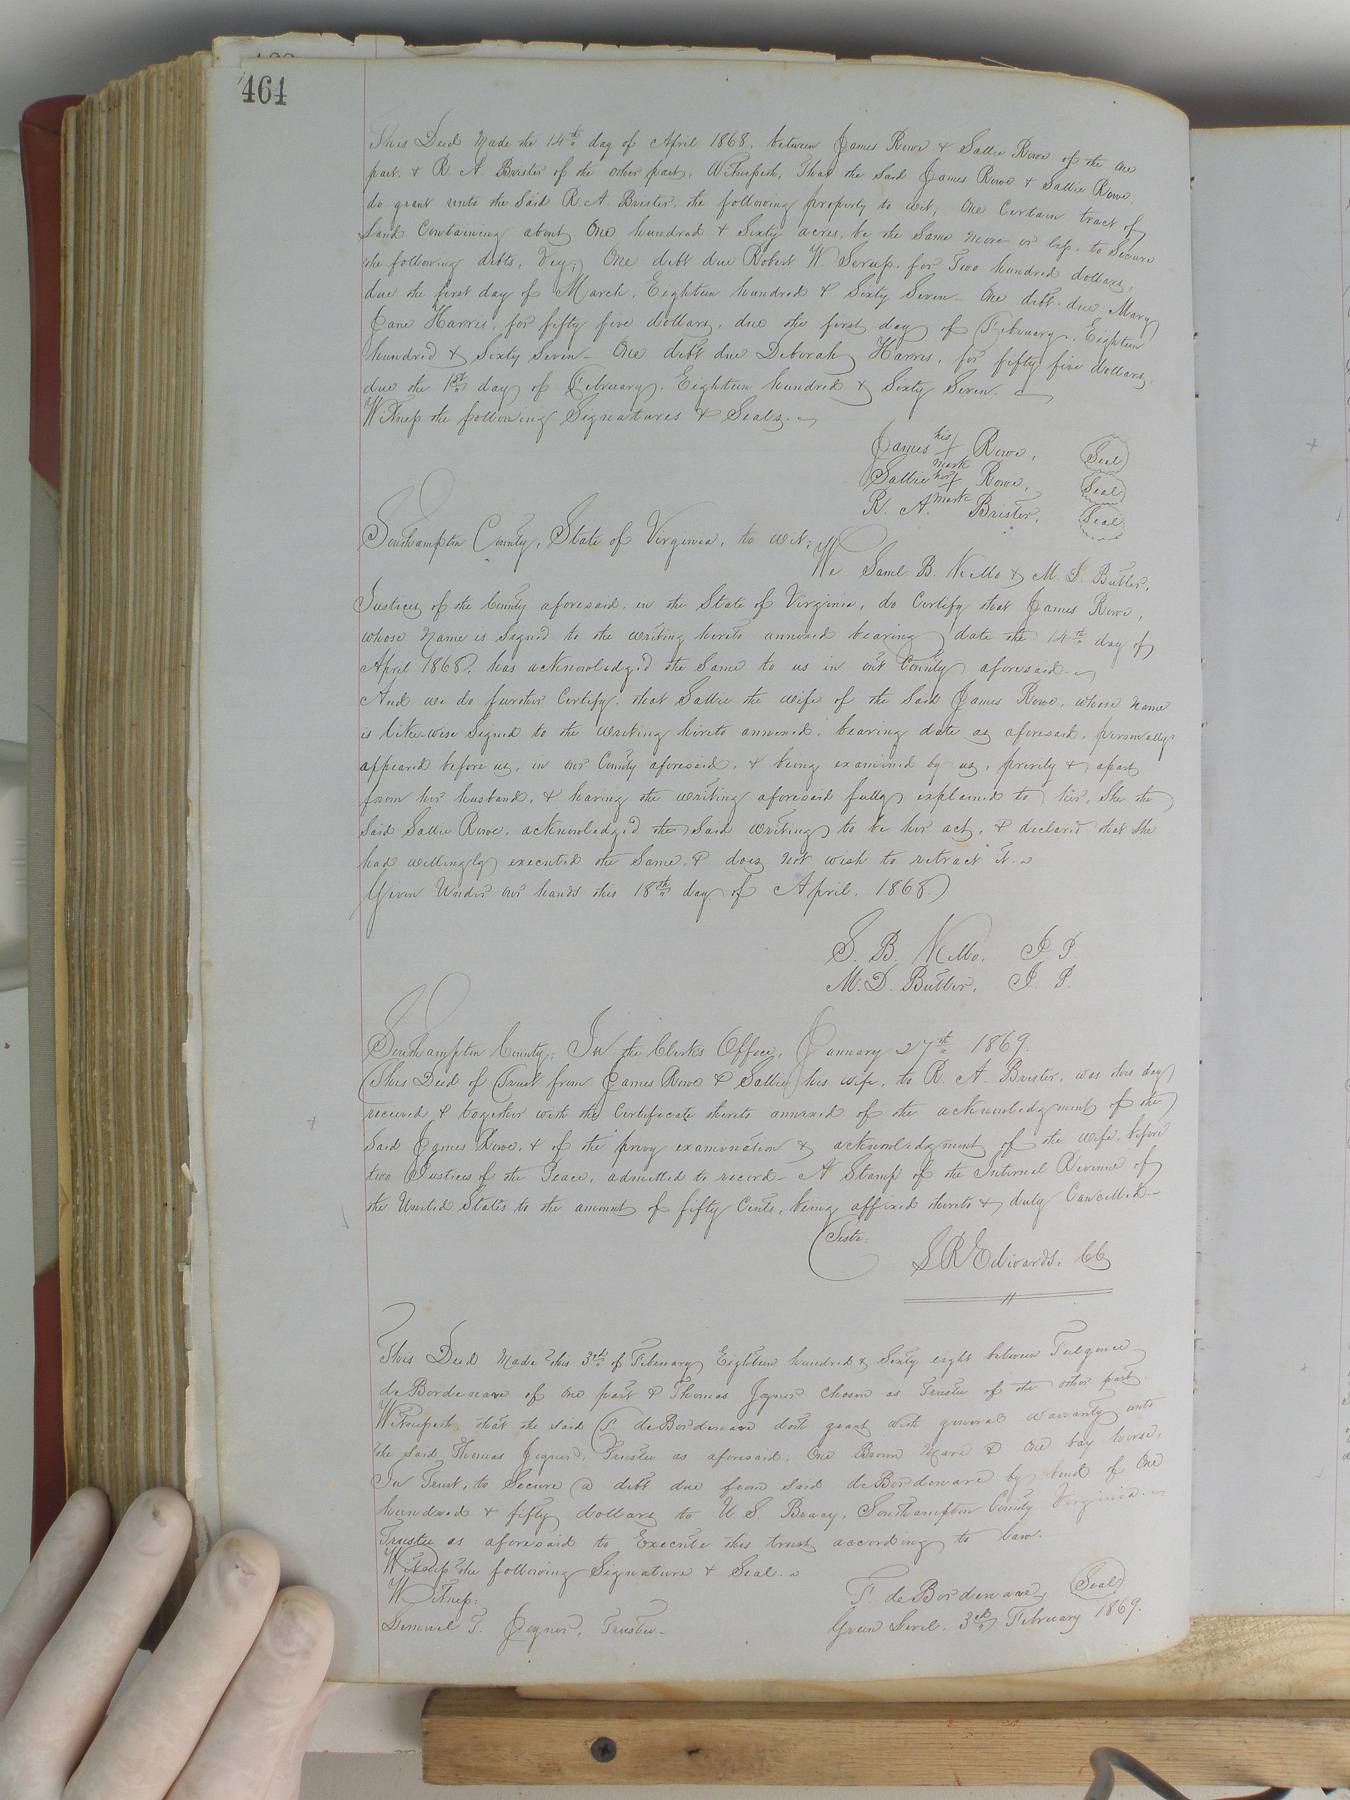 464
This Deed Made the 14th day of April 1868, between James Rowe & Sallie Rowe of the one
part, & R. A. Brister of the other part, Witnesseth, That the said James Rowe & Sallie Rowe,
do grant unto the Said R. A. Brister, the following property to wit, One Certain tract of
Land Containing about One hundred & Sixty acres, be the Same more or less, to Secure
the following debts, Viz, One debt due Robert W. for Two hundred dollars,
due the first day of March, Eighteen hundred & Sixty Seven - One debt due Mary
Jane Harris, for fifty five dollars, due the first day of February, Eighteen
hundred & Sixty Seven - One debt due Deborah Harris, for fifty five dollars,
due the 1st day of February, Eighteen hundred & Sixty Seven.
Witness the following Signatures & Seals.
James his X mark Rowe, Seal
Sallie her X mark Rowe, Seal
R. A. Brister, Seal
Southampton County, State of Virginia, to wit:
We Saml. B. & M. D. Butler,
Justices of the County aforesaid, in the State of Virginia, do Certify that James Rowe,
whose Name is Signed to the writing hereto annexed bearing date the 14th day of
April 1868, has acknowledged the Same to us in our County aforesaid.
And we do further Certify, that Sallie the wife of the Said James Rowe, whose name
is like-wise Signed to the writing hereto annexed, bearing date as aforesaid, personally
appeared before us, in our County aforesaid, & being examined by us, privily & apart
from her husband, & having the writing aforesaid fully explained to her, She the
Said Sallie Rowe, acknowledged the Said writing to be her act, & declared that She
had willingly executed the Same, & does not wish to retract it.
Given Under our hands this 18th day of April, 1868
S. B. J. P.
M. D. Butler, J. P.
Southampton County, In the Clerk's Office, January 27th 1869.
This Deed of Trust from James Rowe & Sallie his wife, to R. A. Brister, was this day
received & together with the Certificate thereto annexed of the acknowledgment of the
Said James Rowe, & of the privy examination & acknowledgment of the wife, before
two Justices of the Peace, admitted to record - A Stamp of the Internal Revenue of
the United States to the amount of fifty Cents, being affixed thereto & duly Cancelled -
Teste:
L R Edwards, CC
This Deed Made this 3rd of February Eighteen hundred & Sixty eight between
de Bordenave of one part & Thomas Joyner chosen as Trustee of the other part.
Witnesseth that the said F. deBordenave doth grant with general warranty unto
the Said Thomas Joyner, Trustee as aforesaid, One Brown Mare & One bay horse,
In Trust, to Secure a debt due from said deBordenave by bond of One
hundred & fifty dollars to U. S. Southampton County Virginia.
Trustee as aforesaid to Execute this trust according to law.
Witness the following Signature & Seal.
Witness:
F. deBordenave Seal
Lemuel T. Joyner, Trustee -
Green Level, 3rd February 1869.